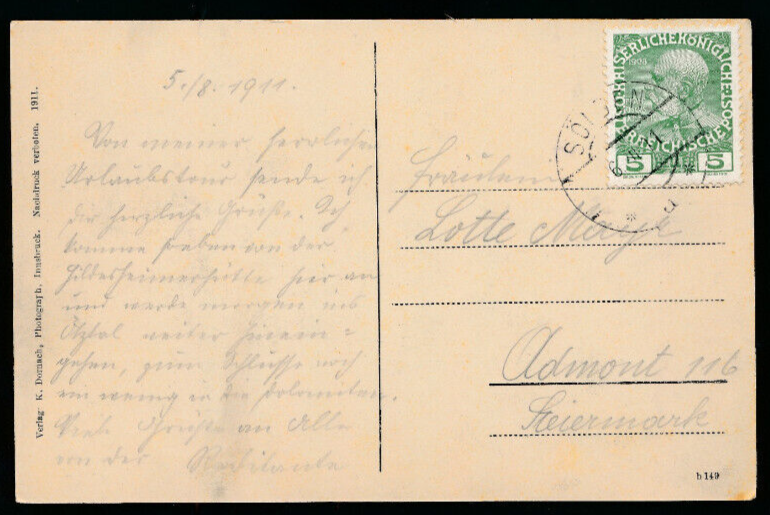 Verlag K. Dornach, Photograph, Innsbruck. Nachdruck verboten. 1911.
5./8. 1911.
Von meiner herrlichen
Urlaubstour sende ich
dir herzliche Grüße. Ich
komme soeben von der
Hildesheimerhütte hier an
und werde morgen ins
Ötztal weiter hinein-
gehen, zum Schlusse noch
ein wenig in die Dolomiten.
Viele Grüße an Alle
von der
KAISERLICHEKÖNIGLICHE ÖSTERREICHISCHE
1908
5 5
SÖLDEN
Fräulein
Lotte
Admont 116
Steiermark
b 149